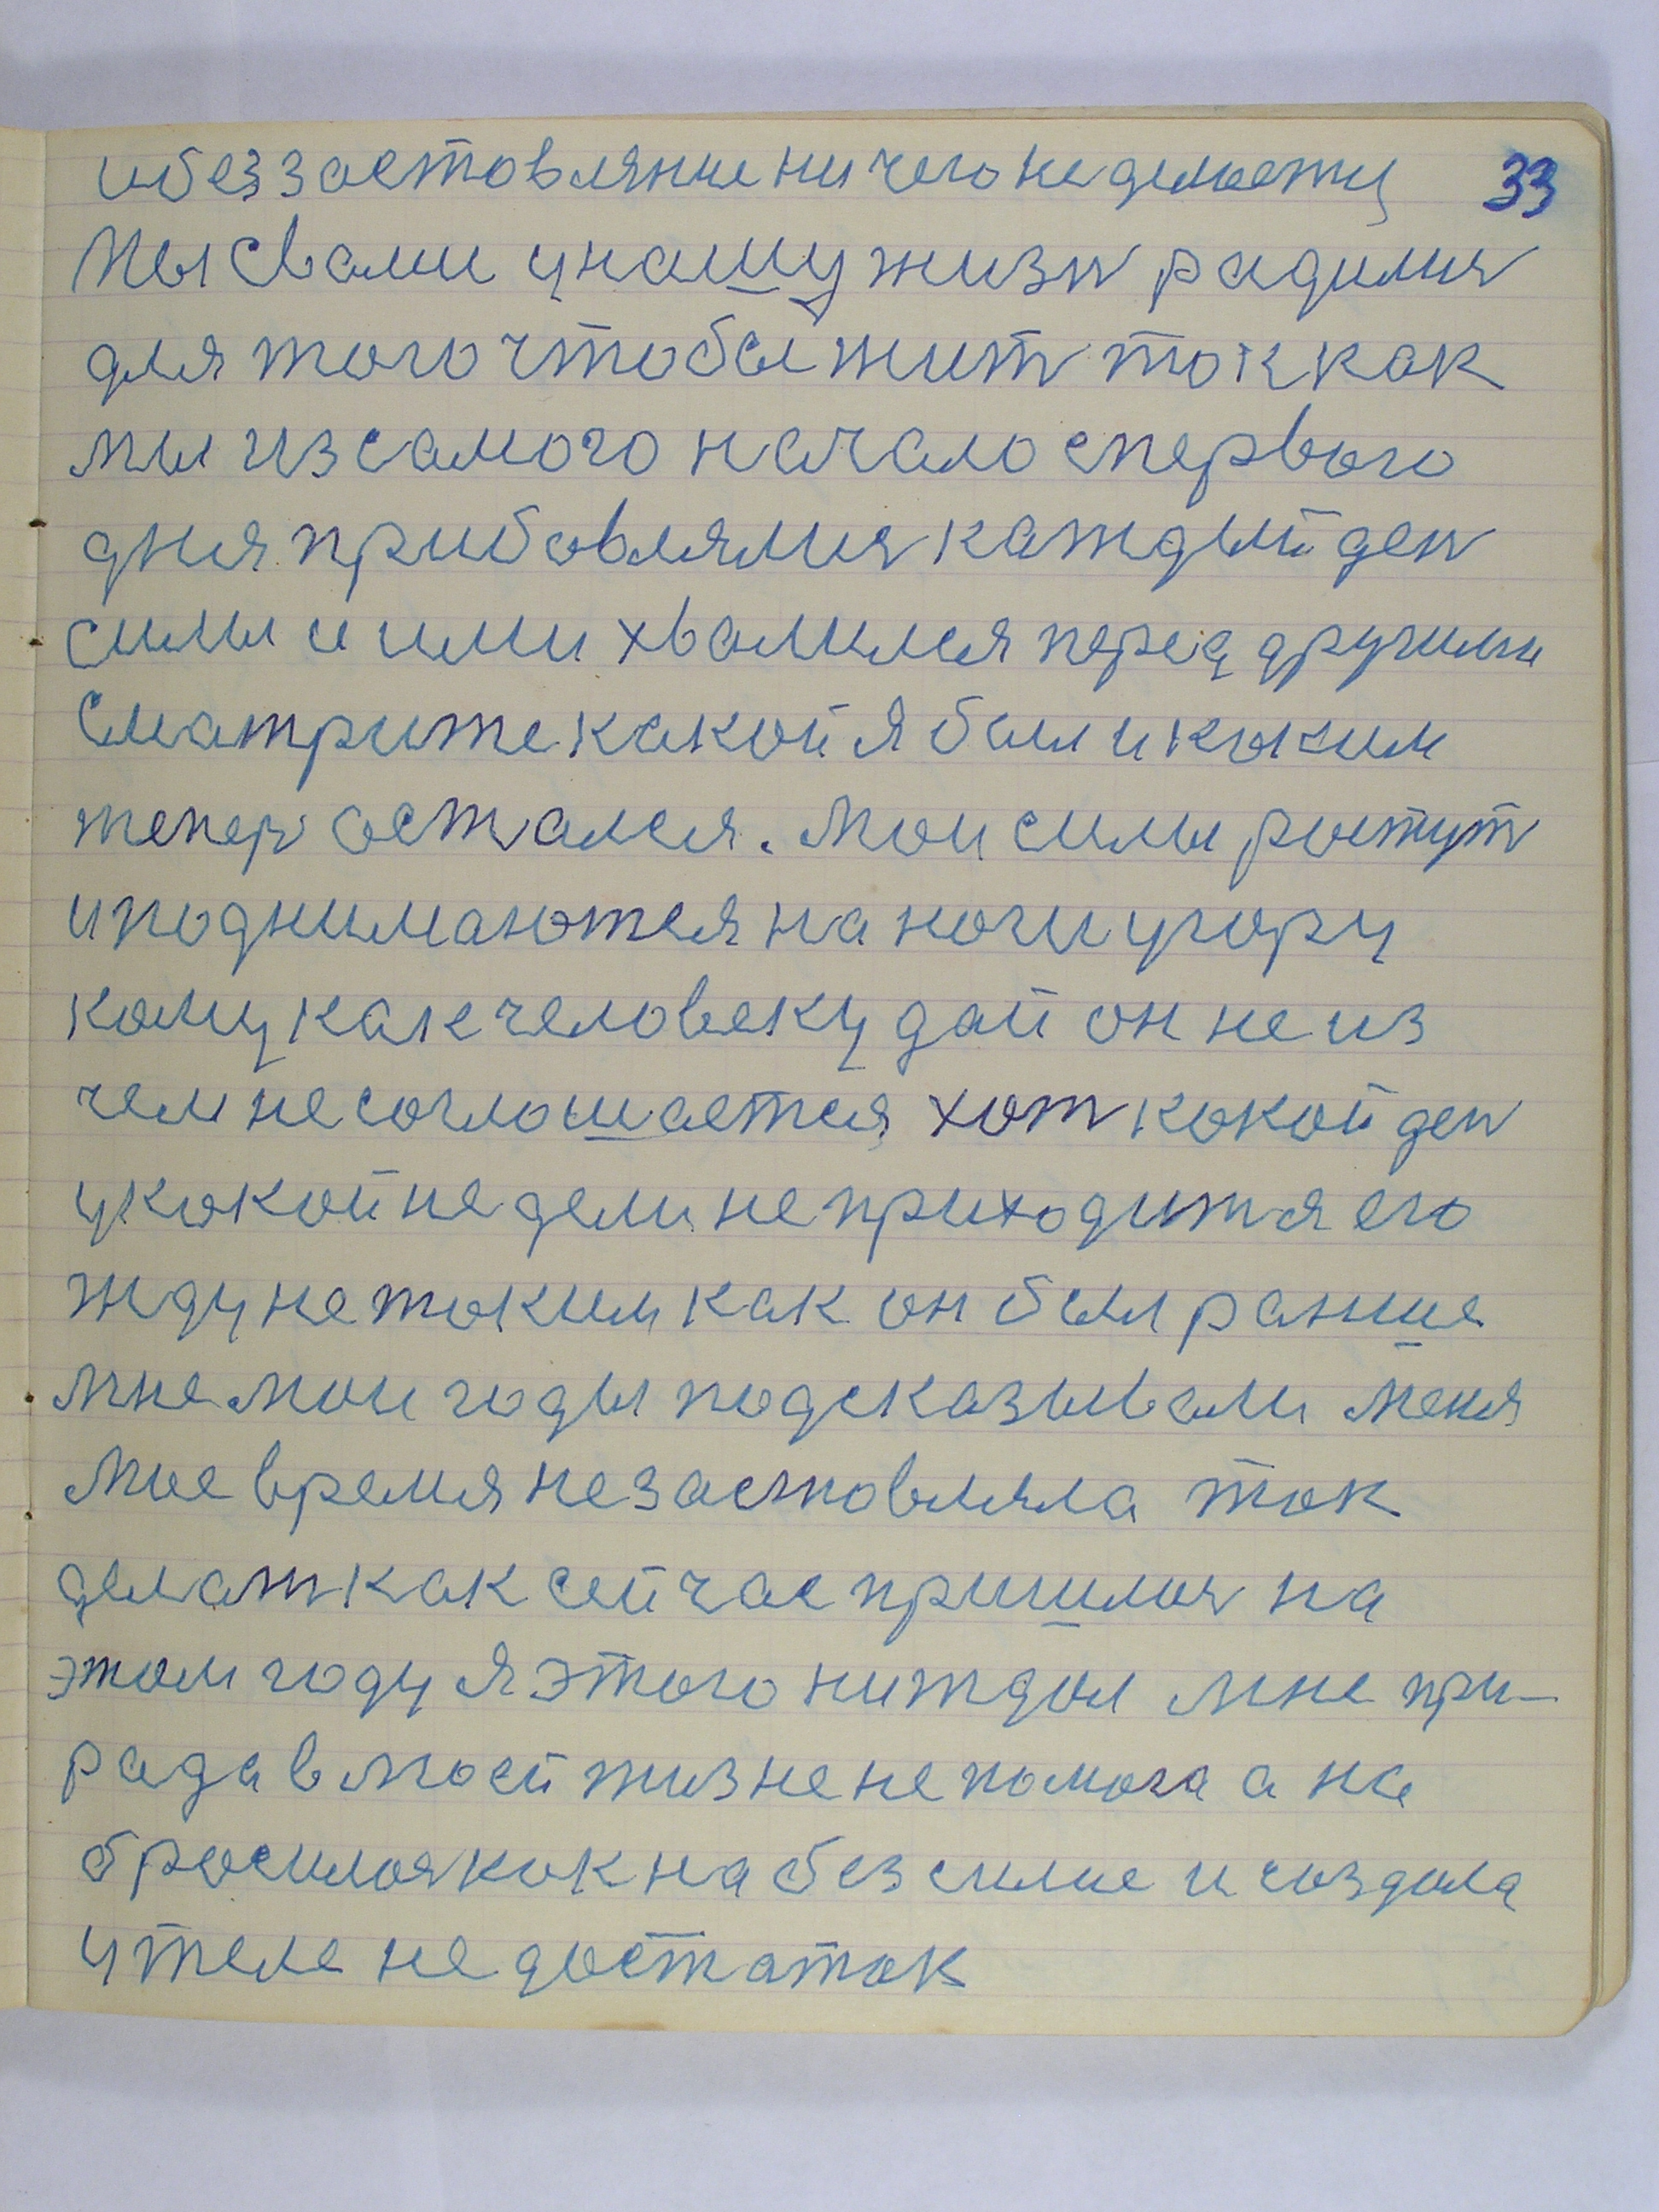 и без заставляние ни чего не делаетц 33
Мы свами у нашу жизн радилис
для того чтобы жит так как
мы из самого начало спервого
дня прибавлялис каждый ден
силы и ими хвалился перед другими
Сматрите какой я был и каким
тепер астался. Мои силы растут
и поднимаются на ноги угору
кому как человеку дай он не из
чем не соглашается хот какой ден
у какой недели не приходится его
жду не таким как он был ранше
мне мои годы подсказывали меня
мое время незаставляла так
делат как сейчас пришлос на
этом году я этого ни ждал мне при-
рада в моей жизне не помога а на
бросилас как на без силие и создала
у теле не дастаток